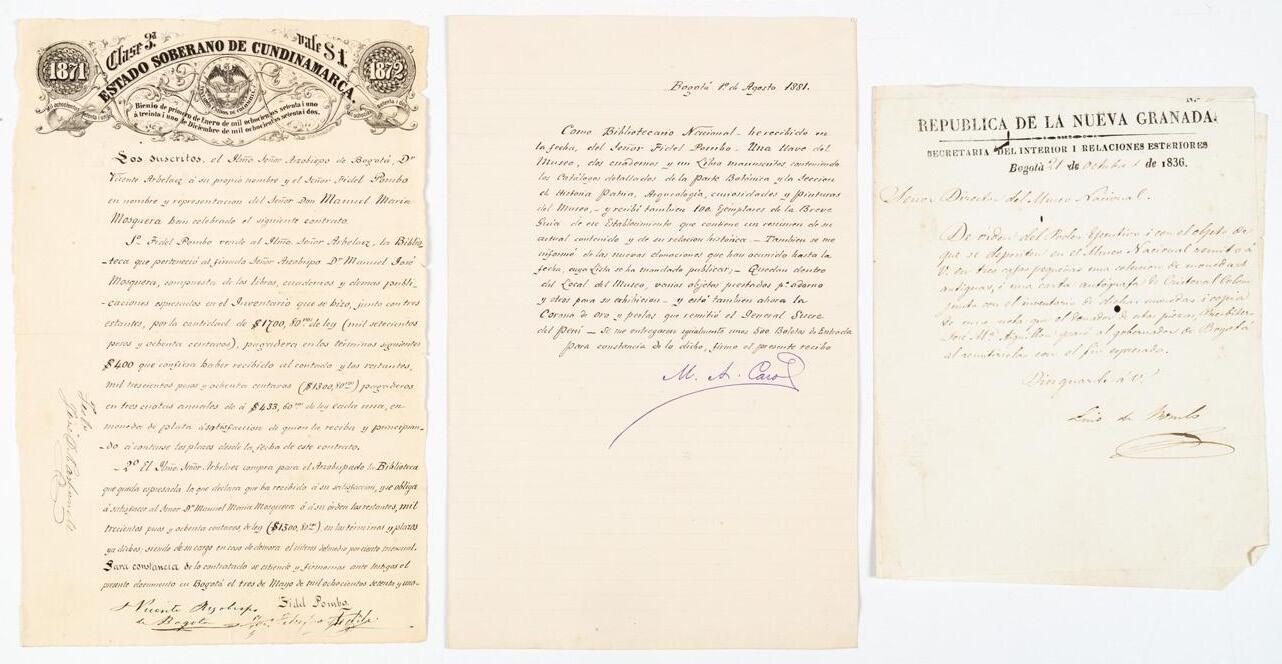 Clase 3ª vale $1.
ESTADO SOBERANO DE CUNDINAMARCA.
1871
1872
Bienio de primero de Enero de mil ochocientos setenta i uno
á treinta i uno de Diciembre de mil ochocientos setenta i dos.
Los suscritos, el Ilmo Señor Arzobispo de Bogotá, Dr
Vicente Arbelaez á su propio nombre y el Señor Fidel Pombo
en nombre y representacion del Señor Don Manuel Maria
Mosquera han celebrado el siguiente contrato.
1º Fidel Pombo vende al Ilmo. Señor Arbelaez, la Biblio-
-teca que perteneció al finado Señor Arzobispo Dr Manuel José
Mosquera, compuesta de los libros, cuadernos y demas publi-
-caciones espresados en el Inventario que se hizo, junto con tres
estantes, por la cantidad de $1700,80 de ley (mil setecientos
pesos y ochenta centavos), pagadera en los términos siguientes
$400 que confiesa haber recibido al contado y los restantes,
mil trescientos pesos y ochenta centavos ($1300,80) pagaderos
en tres cuotas annales de á $433,60 de ley cada una, en
moneda de plata á satisfaccion de quien la reciba y principian-
-do á contarse los plazos desde la fecha de este contrato.
2º El Ilmo Señor Arbelaez compra para el Arzobispado la Biblioteca
que queda espresada, la que declara que ha recibido á su satisfaccion, y se obliga
á satisfacer al Senor Dn Manuel Maria Mosquera ó á su órden los restantes, mil
trecientos pesos y ochenta centavos, de ley ($1300,80) en los términos y plazos
ya dichos; siendo de su cargo en caso de demora el interes del medio por ciento mensual.
Para constancia de lo contratado se estiende y firmamos ante testigos el
presente documento en Bogotá el tres de Mayo de mil ochocientos setenta y uno-
+ Vicente Arzobispo
de Bogotá
Fidel Pombo
Bogotá 1º de Agosto 1881.
Como Bibliotecario Nacional - he recibido en
la fecha, del Señor Fidel Pombo - Una llave del
Museo, dos cuadernos y un Libro manuscritos conteniendo
los Catálogos detallados de la Parte Botánica y la Seccion
de Historia Patria, Arqueología, curiosidades y Pinturas
del Museo, - y recibí tambien 100 Ejemplares de la Breve
Guia de ese Establecimiento que contiene un resumen de su
actual contenido y de su relacion histórica - Tambien se me
informó de las nuevas donaciones que han ocurrido hasta la
fecha, cuya Lista se ha mandado publicar; - Quedan dentro
del Local del Museo, varios objetos prestados pª adorno
y otros para su exhibicion - y está tambien ahora la
Corona de oro y perlas que remitió el General Sucre
del Perú - Se me entregaron igualmente unas 500 Boletas de Entrada
Para constancia de lo dicho, firmo el presente recibo
M. A. Caro
REPUBLICA DE LA NUEVA GRANADA.
SECRETARIA DEL INTERIOR I RELACIONES ESTERIORES
Bogotá 21 de Octubre de 1836.
Señor Director del Museo Nacional.
De órden del Poder Ejecutivo i con el objeto de
que se depositen en el Museo Nacional remito á
V. en tres cajas pequeñas una coleccion de monedas
antiguas, i una carta autógrafa de Cristoval Colon
junto con el inventario de dichas monedas i copia
de una nota que el donador de estas piezas, Presbítero
José Mª pasó al gobernador de Bogotá
al remitirselas con el fin espresado.
Dios guarde á V.
Lino de Pombo